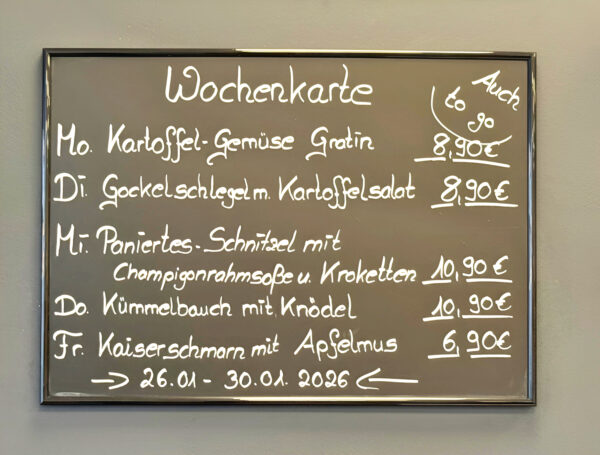 Wochenkarte
Auch
to
go
Mo. Kartoffel-Gemüse Gratin 8,90€
Di. Gockelschlegel m. Kartoffelsalat 8,90€
Mi. Paniertes-Schnitzel mit
Champigonrahmsoße u. Kroketten 10,90€
Do. Kümmelbauch mit Knödel 10,90€
Fr. Kaiserschmarn mit Apfelmus 6,90€
→ 26.01 - 30.01. 2026 ←